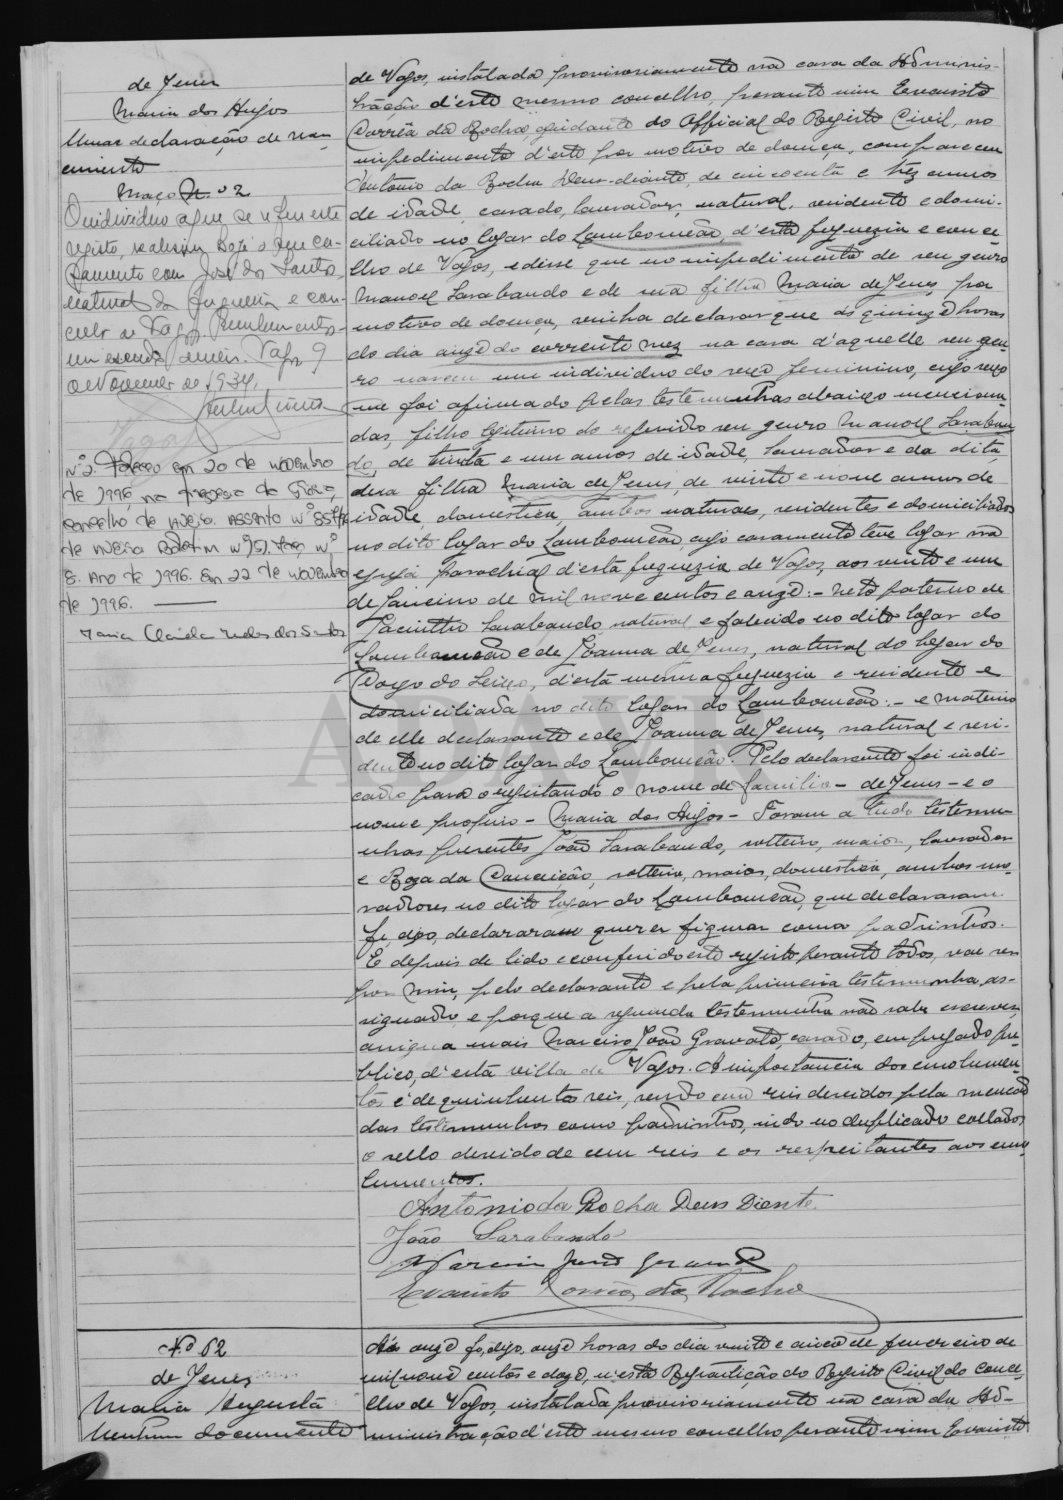 de Jesus
Maria dos Anjos
Uma declaração de nas-
cimento
Maço N.º 2
O individuo a que se refere este
registo, realisou hoje o seu ca-
samento com José dos Santos,
natural da freguesia e con-
celho de Vagos.
Vagos 9
de Novembro de 1934.
Vagos
Nº 2. Faleceu em 20 de novembro
de 1996, na freguesia da Glória,
concelho de Aveiro. Assento nº
de Aveiro Boletim nº 151 Maço nº
8. Ano de 1996. Em 22 de novembro
de 1996.
Maria dos Santos
de Vagos, instalada provisoriamente na casa da Adminis-
tração d'este mesmo concelho, perante mim Evaristo
Corrêa da Rocha ajudante do Official do Registo Civil, no
impedimento d'este por motivo de doença, compareceu
Antonio da Rocha Deus-diante, de cincoenta e trez annos
de idade, casado, lavrador, natural, residente e domi-
ciliado no logar do Lombomeão, d'esta freguezia e conce-
lho de Vagos, e disse que no impedimento de seu genro
Manoel Sarabando e de sua filha Maria de Jesus, por
motivo de doença, vinha declarar que ás quinze horas
do dia onze do corrente mez na casa d'aquelle seu gen-
ro nasceu um individuo do sexo feminino, cujo sexo
me foi afirmado pelas testemunhas abaixo menciona-
das, filho legitimo do referido seu genro Manoel Saraban-
do, de trinta e um annos de idade, lavrador e da dita
sua filha Maria de Jesus, de vinte e nove annos de
idade, domestica, ambos naturaes, residentes e domiciliados
no dito logar do Lombomeão, cujo casamento teve logar na
egreja parochial d'esta freguezia de Vagos, aos vinte e um
de Janeiro de mil novecentos e onze:- neto paterno de
Jacintho Sarabando, natural e falecido no dito logar do
Lombomeão e de Joanna de Jesus, natural do logar do
do Seixo, d'esta mesma freguezia e residente e
domiciliada no dito logar do Lombomeão:- e materno
de elle declarante e de Joanna de Jesus, natural e resi-
dente no dito logar do Lombomeão. Pelo declarante foi indi-
cado para o registando o nome de familia - de Jesus - e o
nome proprio - Maria dos Anjos - Foram a tudo testemu-
nhas presentes João Sarabando, solteiro, maior, lavrador
e Roza da Conceição, solteira, maior, domestica, ambos mo-
radores no dito logar do Lombomeão, que declararam.
fé, digo, declararam querer figurar como padrinhos.
E depois de lido e conferido este registo perante todos, vae ser
por mim, pelo declarante e pela primeira testemunha, as-
signado, e porque a segunda testemunha não sabe escrever,
assigna mais Narciso João Gravato, casado, empregado pu-
blico, d'esta villa de Vagos. A importancia dos emolumen-
tos é de quinhentos reis, sendo cem reis devidos pela menção
das testemunhas como padrinhos, indo no duplicado collados
o sello devido de cem reis e os respeitantes aos emo-
lumentos.
Antonio da Rocha Deus Diante.
João Sarabando
Narciso João Gravato
Evaristo Corrêa da Rocha
N.º 62
de Jesus
Maria Augusta
Nenhum documento
Ás onze fé, digo, onze horas do dia vinte e cinco de fevereiro de
mil novecentos e doze, n'esta Repartição do Registo Civil do conce-
lho de Vagos, instalada provisoriamente na casa da Ad-
ministração d'este mesmo concelho perante mim Evaristo
ADAVR